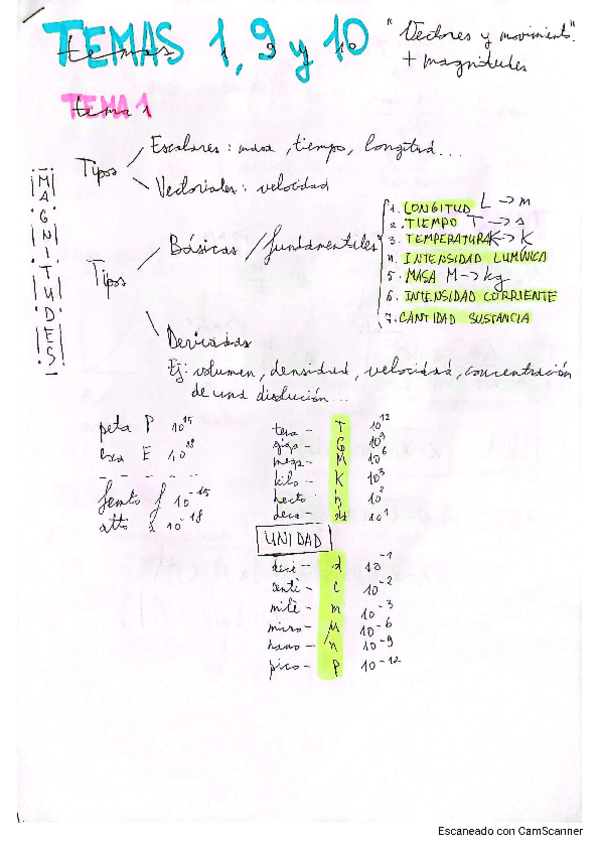 TEMAS 1, 9 y 10
temas 1, 9 y 10
"Vectores y movimiento".
+ magnitudes
TEMA 1
tema 1
MAGNITUDES
Tipos
Escalares: masa, tiempo, longitud...
Vectoriales: velocidad
Tipos
Básicas / fundamentales
1. LONGITUD L → m
2. TIEMPO T → s
3. TEMPERATURA K → K
4. INTENSIDAD LUMÍNICA
5. MASA M → kg
6. INTENSIDAD CORRIENTE
7. CANTIDAD SUSTANCIA
Derivadas
Ej: volumen, densidad, velocidad, concentración
de una disolución...
peta P 10¹⁵
exa E 10¹⁸
- - - - - -
femto f 10⁻¹⁵
atto a 10⁻¹⁸
tera - T 10¹²
giga - G 10⁹
mega - M 10⁶
kilo - K 10³
hecto - h 10²
deca - da 10¹
UNIDAD
deci - d 10⁻¹
centi - c 10⁻²
mili - m 10⁻³
micro - μ 10⁻⁶
nano - n 10⁻⁹
pico - p 10⁻¹²
1.
Escaneado con CamScanner